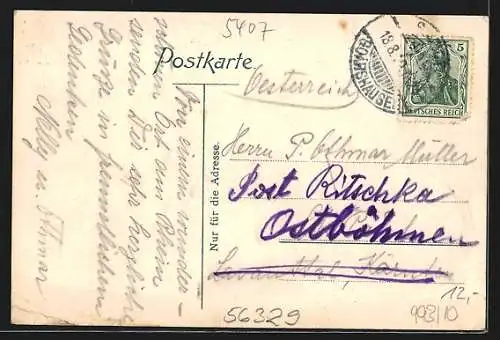 5407
Postkarte
Oesterreich
BOMMERSHAUSEN
18.8.
5
DEUTSCHES REICH
Nur für die Adresse.
Von einem wunder-
vollen Ort am Rhein
senden Dir sehr herzliche
Grüsse in freundlichem
Gedenken
Melly u. Othmar
Herrn P. Othmar Müller
Post Ritschka
Ostböhmen
Lavanttal, Kärnten
56329
12,-
993/10